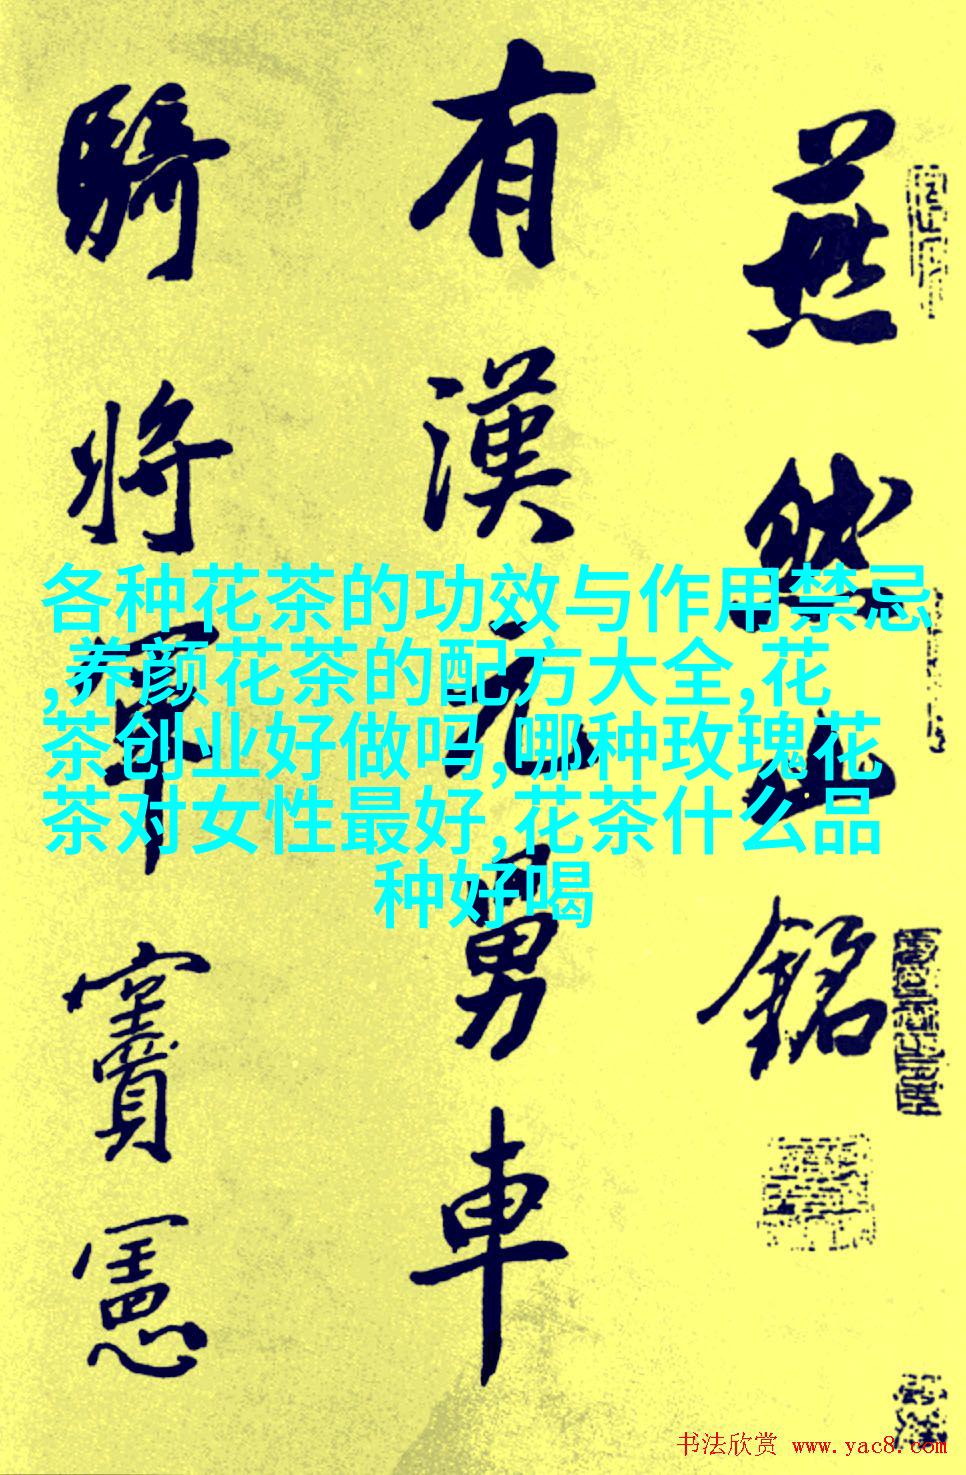 燕然山銘
有漢元舅車
騎將軍竇憲
各种花茶的功效与作用禁忌
,养颜花茶的配方大全,花
茶创业好做吗,哪种玫瑰花
茶对女性最好,花茶什么品
种好喝
书法欣赏 www.yac8.com